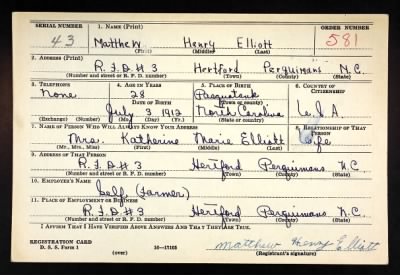 SERIAL NUMBER 1. NAME (Print) ORDER NUMBER
43 Matthew Henry Elliott 581
(First) (Middle) (Last)
2. ADDRESS (Print)
R.F.D # 3 Hertford Perquimans N.C.
(Number and street or R. F. D. number) (Town) (County) (State)
3. TELEPHONE 4. AGE IN YEARS 5. PLACE OF BIRTH 6. COUNTRY OF CITIZENSHIP
None 28 Pasquotank
DATE OF BIRTH (Town or county)
July 3 1912 North Carolina U.S.A
(Exchange) (Number) (Mo.) (Day) (Yr.) (State or country)
7. NAME OF PERSON WHO WILL ALWAYS KNOW YOUR ADDRESS 8. RELATIONSHIP OF THAT PERSON
Mrs. Katherine Marie Elliott Wife
(Mr., Mrs., Miss) (First) (Middle) (Last)
9. ADDRESS OF THAT PERSON
R.F.D # 3 Hertford Perquimans N.C.
(Number and street or R. F. D. number) (Town) (County) (State)
10. EMPLOYER'S NAME
Self, (Farmer)
11. PLACE OF EMPLOYMENT OR BUSINESS
R.F.D # 3 Hertford Perquimans N.C.
(Number and street or R. F. D. number) (Town) (County) (State)
I AFFIRM THAT I HAVE VERIFIED ABOVE ANSWERS AND THAT THEY ARE TRUE.
REGISTRATION CARD
D. S. S. Form 1 16—17105 Matthew Henry Elliott
(over) (Registrant's signature)